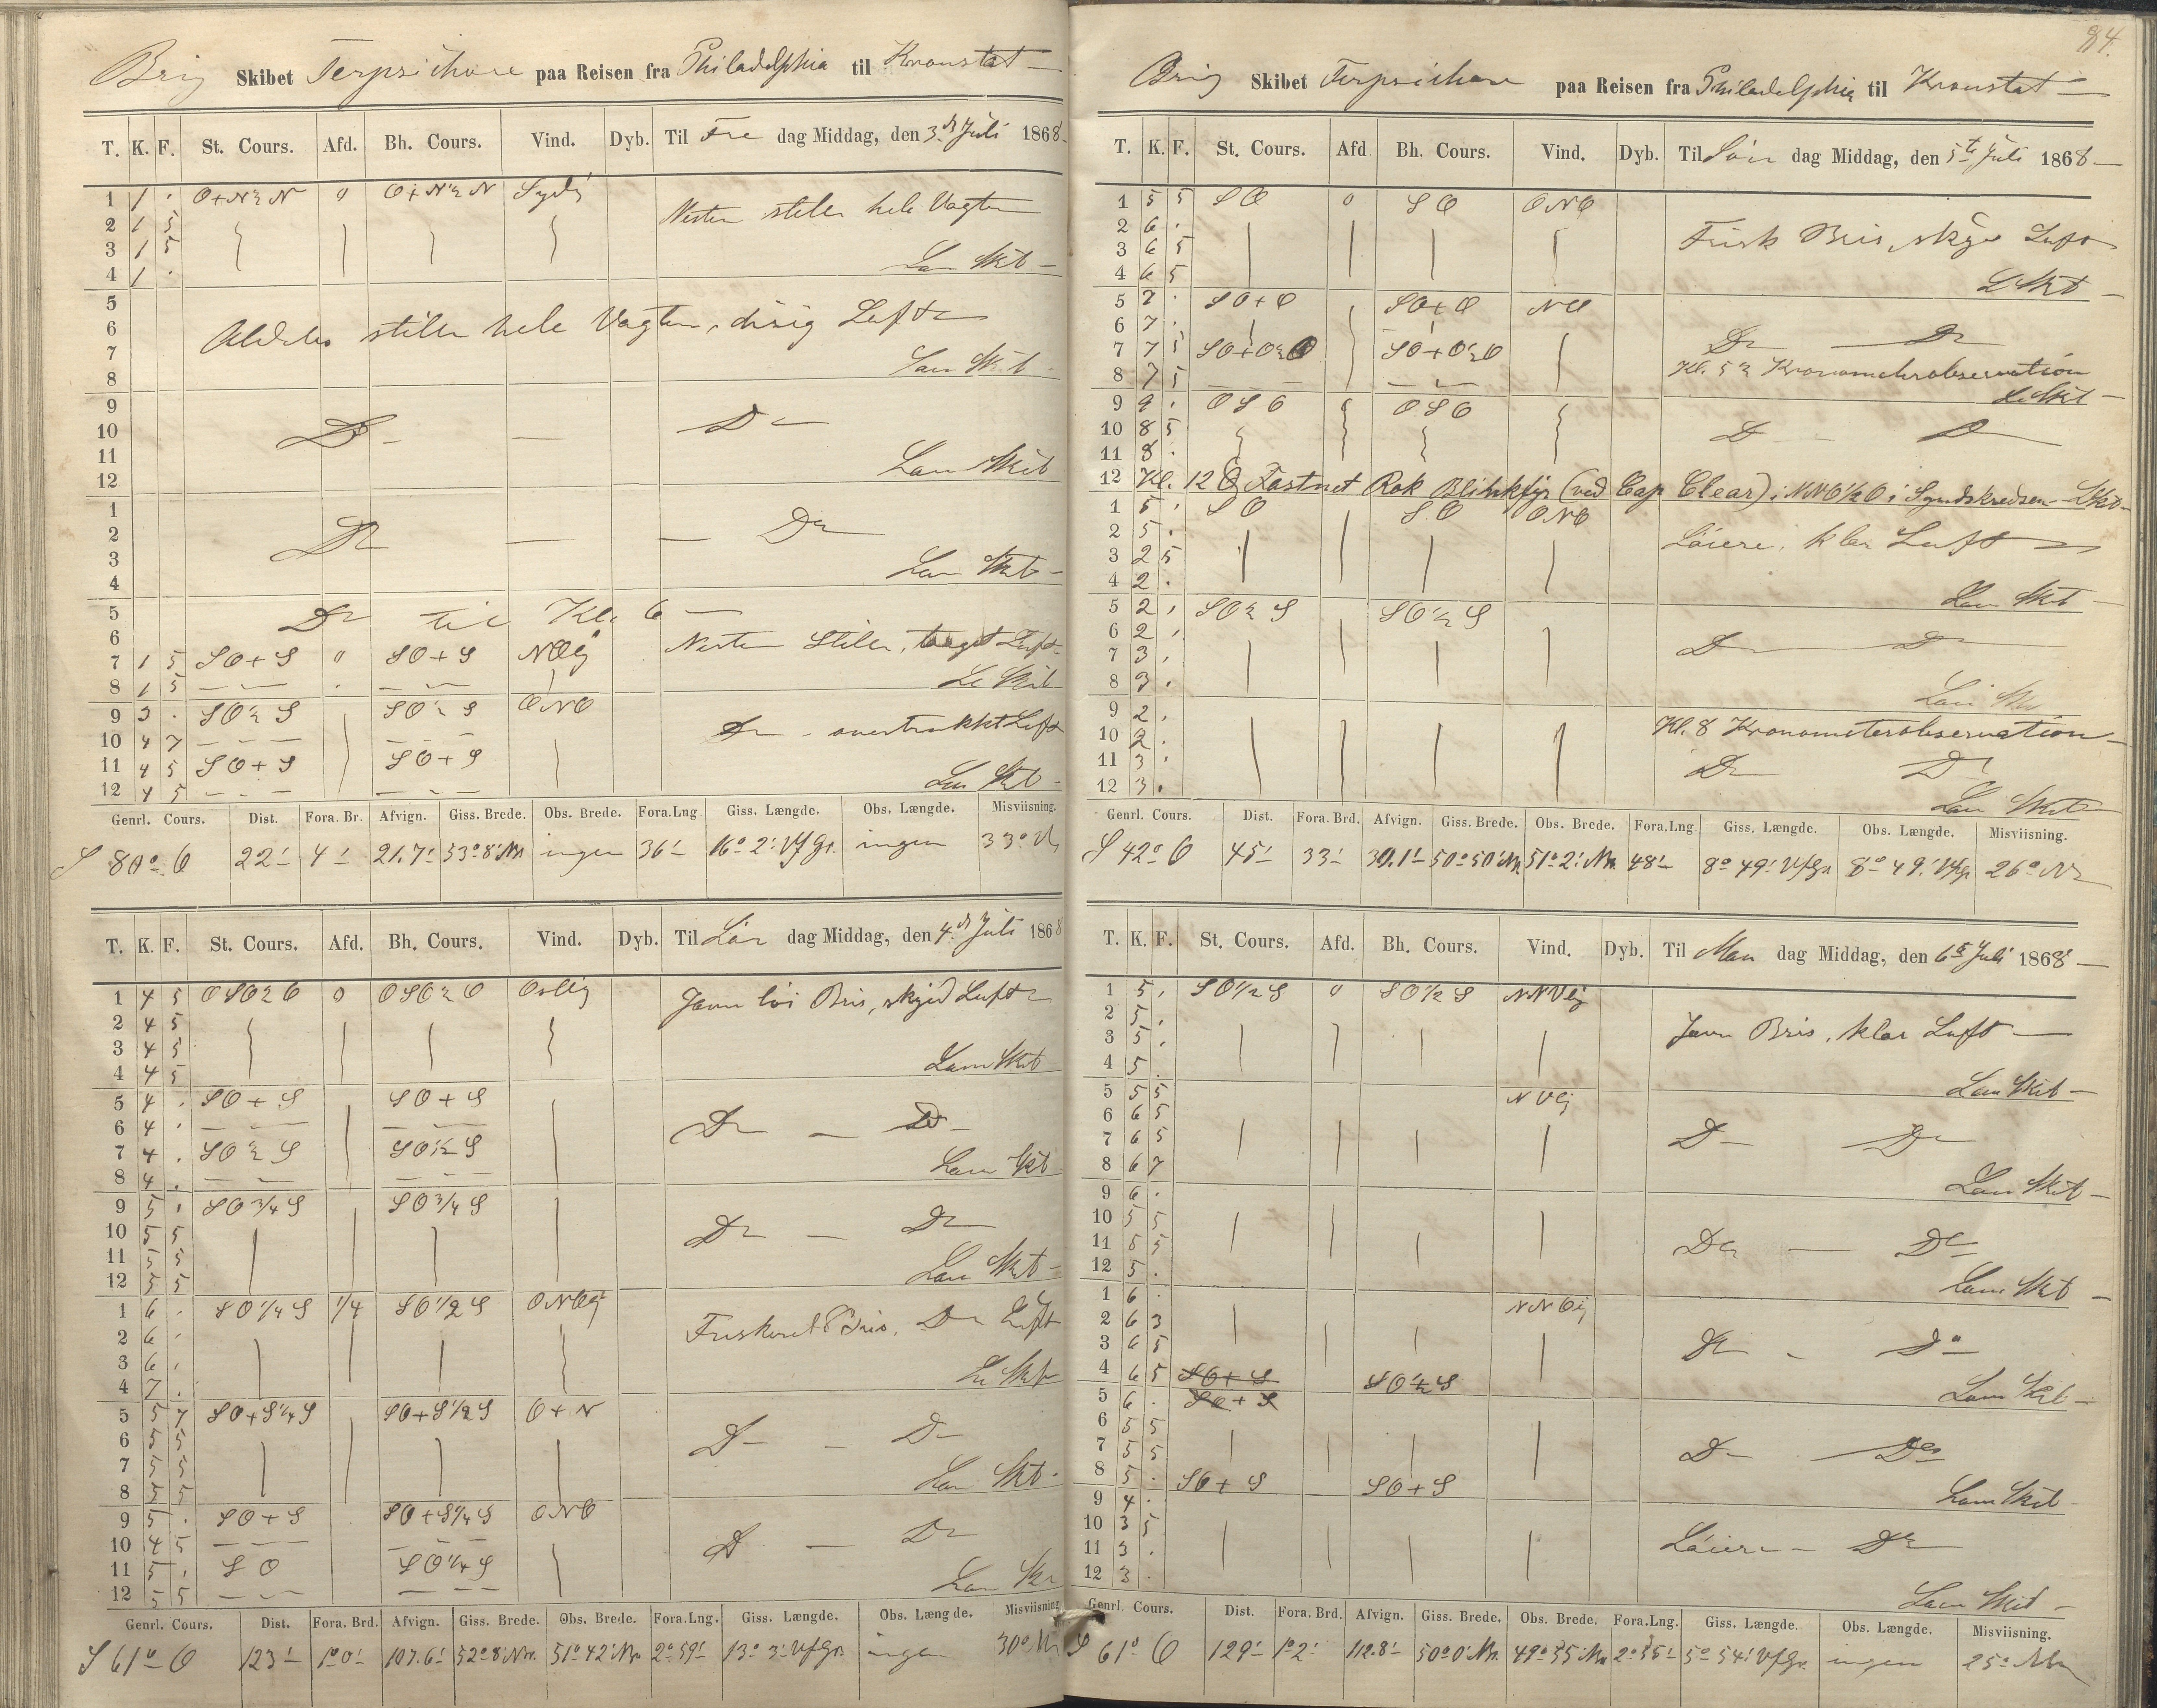 Brig Skibet Terpsichore paa Reisen fra Philadelphia til Kronstat
T. K. F. St. Cours. Afd. Bh. Cours. Vind. Dyb. Til Fre dag Middag, den 3. Juli 1868
1 1 . O+N½N 0 O+N½N Sydlig
Nesten stille hele Vagten
2 1 5
3 1 5
4 1 .
Lam Skib
5
6 stille hele Vagten, disig Luft
7
8 Lam Skib
9
10 Do Do
11
12 Lam Skib
1
2 Do Do
3
4 Lam Skib
5 Do til Kl. 6
6 Nesten Stille, taaget Luft
7 1 5 SO+S 0 SO+S NOlig
8 1 5 Le Skib
9 3 . SO½S SO½S ONO
10 4 7 Do overtrukket Luft
11 4 5 SO+S SO+S
12 4 5 Skib
Genrl. Cours. Dist. Fora. Br. Afvign. Giss. Brede. Obs. Brede. Fora.Lng Giss. Længde. Obs. Længde. Misviisning.
S 80° O 22' 4' 21.7' 53° 8' Nr. ingen 36' 16° 2' V f Gr. ingen 33° V
T. K. F. St. Cours. Afd. Bh. Cours. Vind. Dyb. Til Lør dag Middag, den 4. Juli 1868
1 4 5 OSO½O 0 OSO½O Oslig Javn løi Bris, skyed Luft
2 4 5
3 4 5
4 4 5 Lam Skib
5 4 . SO+S SO+S
6 4 . Do Do
7 4 . SO½S SO½S
8 4 . Lam Skib
9 5 . SO¾S SO¾S
10 5 5 Do Do
11 5 5
12 5 5 Lam Skib
1 6 . SO¼S 1/4 SO½S ONOlig
2 6 . Friskeret Bris, Do Luft
3 6 .
4 7 . Le Skib
5 5 7 SO+S¼S SO+S½S O+N
6 5 5 Do Do
7 5 5
8 5 5 Lam Skib
9 5 . SO+S SO+S¼S ONO
10 4 5 Do Do
11 5 . SO SO¼S
12 5 5 Lam Skib
Genrl. Cours. Dist. Fora. Brd. Afvign. Giss. Brede. Obs. Brede. Fora.Lng. Giss. Længde. Obs. Længde. Misviisning
S 61° O 123' 1° 0' 107.6' 52° 8' Nr. 51° 42' Nr. 2° 59' 13° 3' V f Gr. ingen 30°
84.
Brig Skibet Terpsichore paa Reisen fra Philadelphia til Kronstat
T. K. F. St. Cours. Afd Bh. Cours. Vind. Dyb. Til Søn dag Middag, den 5te Juli 1868
1 5 5 SO 0 SO ONO
2 6 . Frisk Bris, skyet Luft
3 6 5
4 6 5 L Skib
5 7 . SO+O SO+O NO
6 7 . Do Do
7 7 5 SO+O½O SO+O½O Kl. 5½ Kronometerobservation
8 7 5 Le Skib
9 9 . OSO OSO
10 8 5 Do Do
11 8 .
12 Kl. 12 Fastnet Rok Blinkfyr (ved Cap Clear) i NNO½O i Syndskredsen L Skib
1 5 . SO SO ONO
2 5 . Løiere, klar Luft
3 2 5
4 2 . Lam Skib
5 2 . SO½S SO½S
6 2 . Do Do
7 3 .
8 3 . Lam
9 2 . Kl. 8 Kronometerobservation
10 2 .
11 3 . Do Do
12 3 . Lam Skib
Genrl. Cours. Dist. Fora. Brd. Afvign. Giss. Brede. Obs. Brede. Fora.Lng Giss. Længde. Obs. Længde. Misviisning.
S 42° O 45' 33' 30.1' 50° 50' Nr. 51° 2' Nr. 48' 8° 49' V f Gr. 8° 49' V f Gr. 26°
T. K. F. St. Cours. Afd. Bh. Cours. Vind. Dyb. Til Man dag Middag, den 6te Juli 1868
1 5 . SO½S 0 SO½S NNVlig
2 5 . Javn Bris, klar Luft
3 5 .
4 5 .
5 5 5 NVlig Lam Skib
6 6 5
7 6 5 Do Do
8 6 7 Lam Skib
9 6 .
10 5 5
11 5 5 Do Do
12 5 . Lam Skib
1 6 . NNOlig
2 6 3
3 6 5 Do Do
4 6 5 SO+S SO½S
5 6 . SO+S Lam Skib
6 5 5
7 5 5 Do Do
8 5 . SO+S SO+S
9 4 . Lam Skib
10 3 5
11 3 . Løiere Do
12 3 . Lam Skib
Genrl. Cours. Dist. Fora. Brd. Afvign. Giss. Brede. Obs. Brede. Fora.Lng. Giss. Længde. Obs. Længde. Misviisning.
S 61° O 129' 1° 2' 112.8' 50° 0' Nr. 49° 55' Nr. 2° 55' 5° 54' V f Gr. ingen 25°